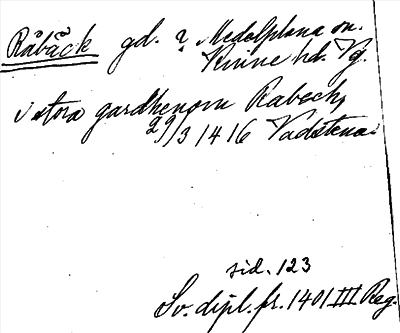 Råbäck gd. ? Medelplana sn.
Kinne hd. Vg.
i stora gardhenom Rabech,
29/3 1416 Vadstena.
sid. 123
Sv. dipl. fr. 1401 III Reg.